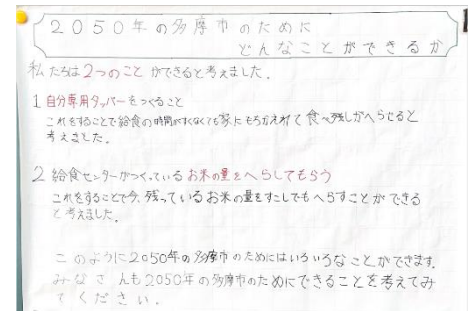 2050年の多摩市のために
どんなことができるか
私たちは2つのことができると考えました。
1 自分専用タッパーをつくること
これをすることで給食の時間がすくなくても家にもちかえれて食べ残しがへらせると
考えました。
2 給食センターがつくっているお米の量をへらしてもらう
これをすることで今、残っているお米の量をすこしでもへらすことができる
と考えました。
このように2050年の多摩市のためにはいろいろなことができます。
みなさんも2050年の多摩市のためにできることを考えてみ
てください。